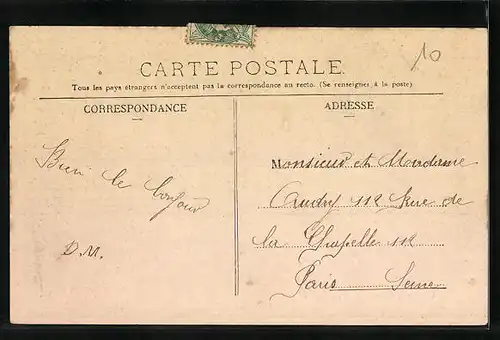 10
CARTE POSTALE
Tous les pays étrangers n'acceptent pas la correspondance au recto. (Se renseigner à la poste)
CORRESPONDANCE
ADRESSE
Bien le bonjour
D.M.
Monsieur et Madame
112 Rue de
la Chapelle 112
Paris Seine